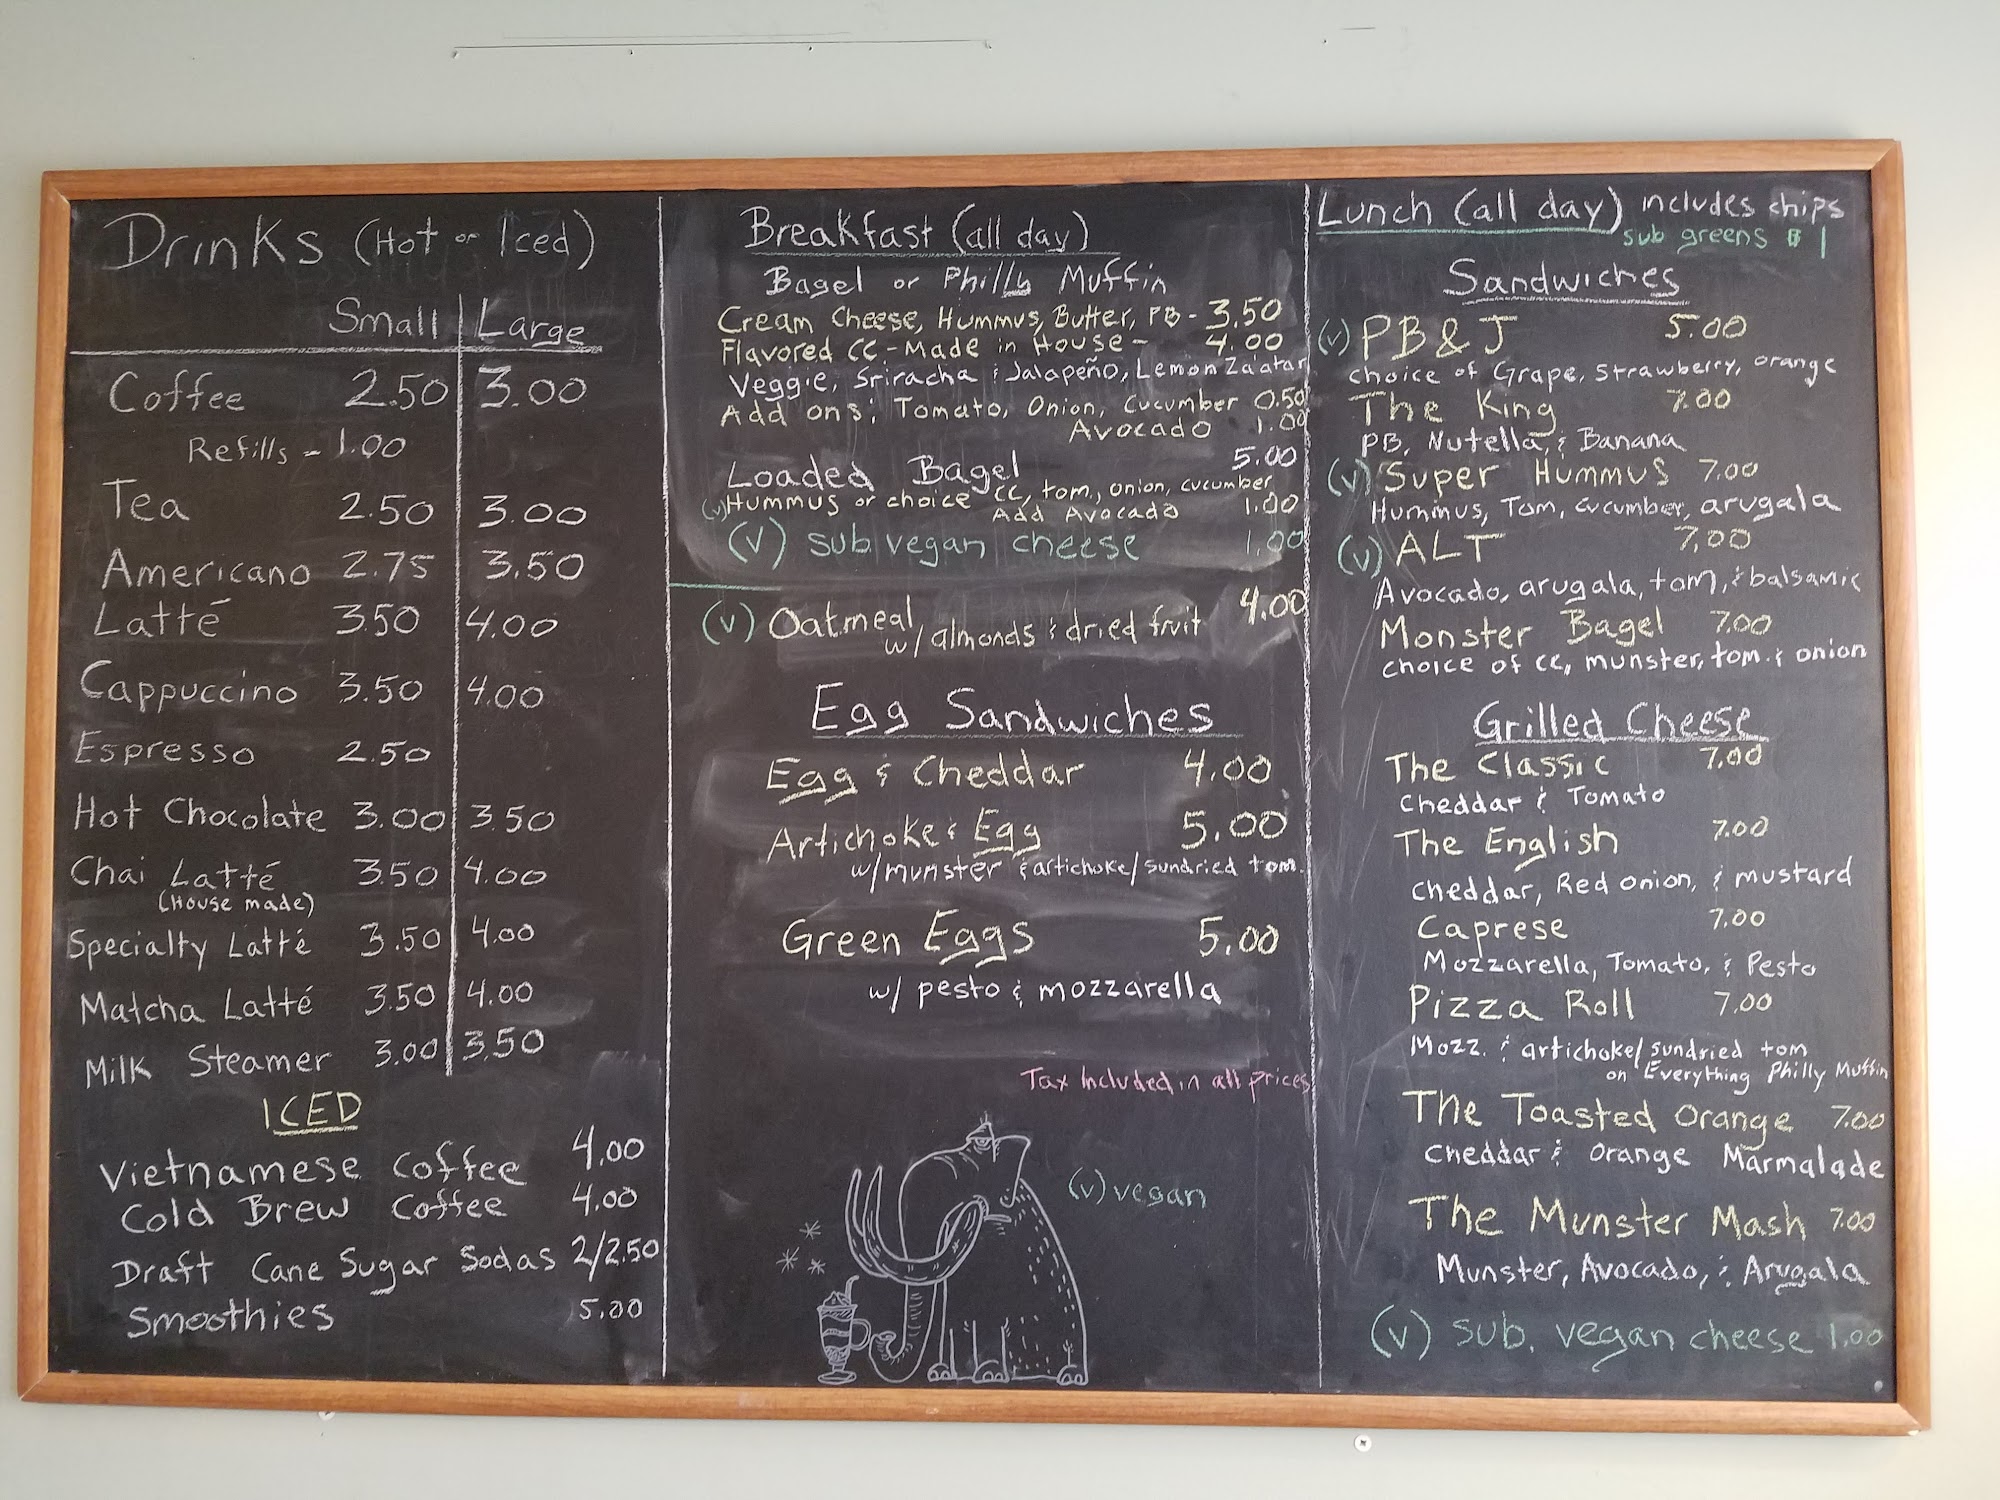 Drinks (Hot or Iced)
Small Large
Coffee 2.50 3.00
Refills - 1.00
Tea 2.50 3.00
Americano 2.75 3.50
Latté 3.50 4.00
Cappuccino 3.50 4.00
Espresso 2.50
Hot Chocolate 3.00 3.50
Chai Latté 3.50 4.00
(House made)
Specialty Latté 3.50 4.00
Matcha Latté 3.50 4.00
Milk Steamer 3.00 3.50
ICED
Vietnamese Coffee 4.00
Cold Brew Coffee 4.00
Draft Cane Sugar Sodas 2/2.50
Smoothies 5.00
Breakfast (all day)
Bagel or Philly Muffin
Cream Cheese, Hummus, Butter, PB - 3.50
Flavored CC - Made in House - 4.00
Veggie, Sriracha & Jalapeño, Lemon Za'atar
Add ons: Tomato, Onion, Cucumber 0.50
Avocado 1.00
Loaded Bagel 5.00
(v) Hummus or choice CC, tom., onion, cucumber
Add Avocado 1.00
(v) sub vegan cheese 1.00
(v) Oatmeal 4.00
w/ almonds & dried fruit
Egg Sandwiches
Egg & Cheddar 4.00
Artichoke & Egg 5.00
w/ munster & artichoke/sundried tom.
Green Eggs 5.00
w/ pesto & mozzarella
Tax Included in all prices
(v) vegan
Lunch (all day) includes chips
sub greens $1
Sandwiches
(v) PB & J 5.00
choice of Grape, Strawberry, orange
The King 7.00
PB, Nutella, & Banana
(v) Super Hummus 7.00
Hummus, Tom, cucumber, arugala
(v) ALT 7.00
Avocado, arugala, tom, & balsamic
Monster Bagel 7.00
choice of CC, munster, tom. & onion
Grilled Cheese
The Classic 7.00
Cheddar & Tomato
The English 7.00
cheddar, Red onion, & mustard
Caprese 7.00
Mozzarella, Tomato, & Pesto
Pizza Roll 7.00
Mozz. & artichoke/sundried tom
on Everything Philly Muffin
The Toasted Orange 7.00
Cheddar & Orange Marmalade
The Munster Mash 7.00
Munster, Avocado, & Arugala
(v) sub. vegan cheese 1.00